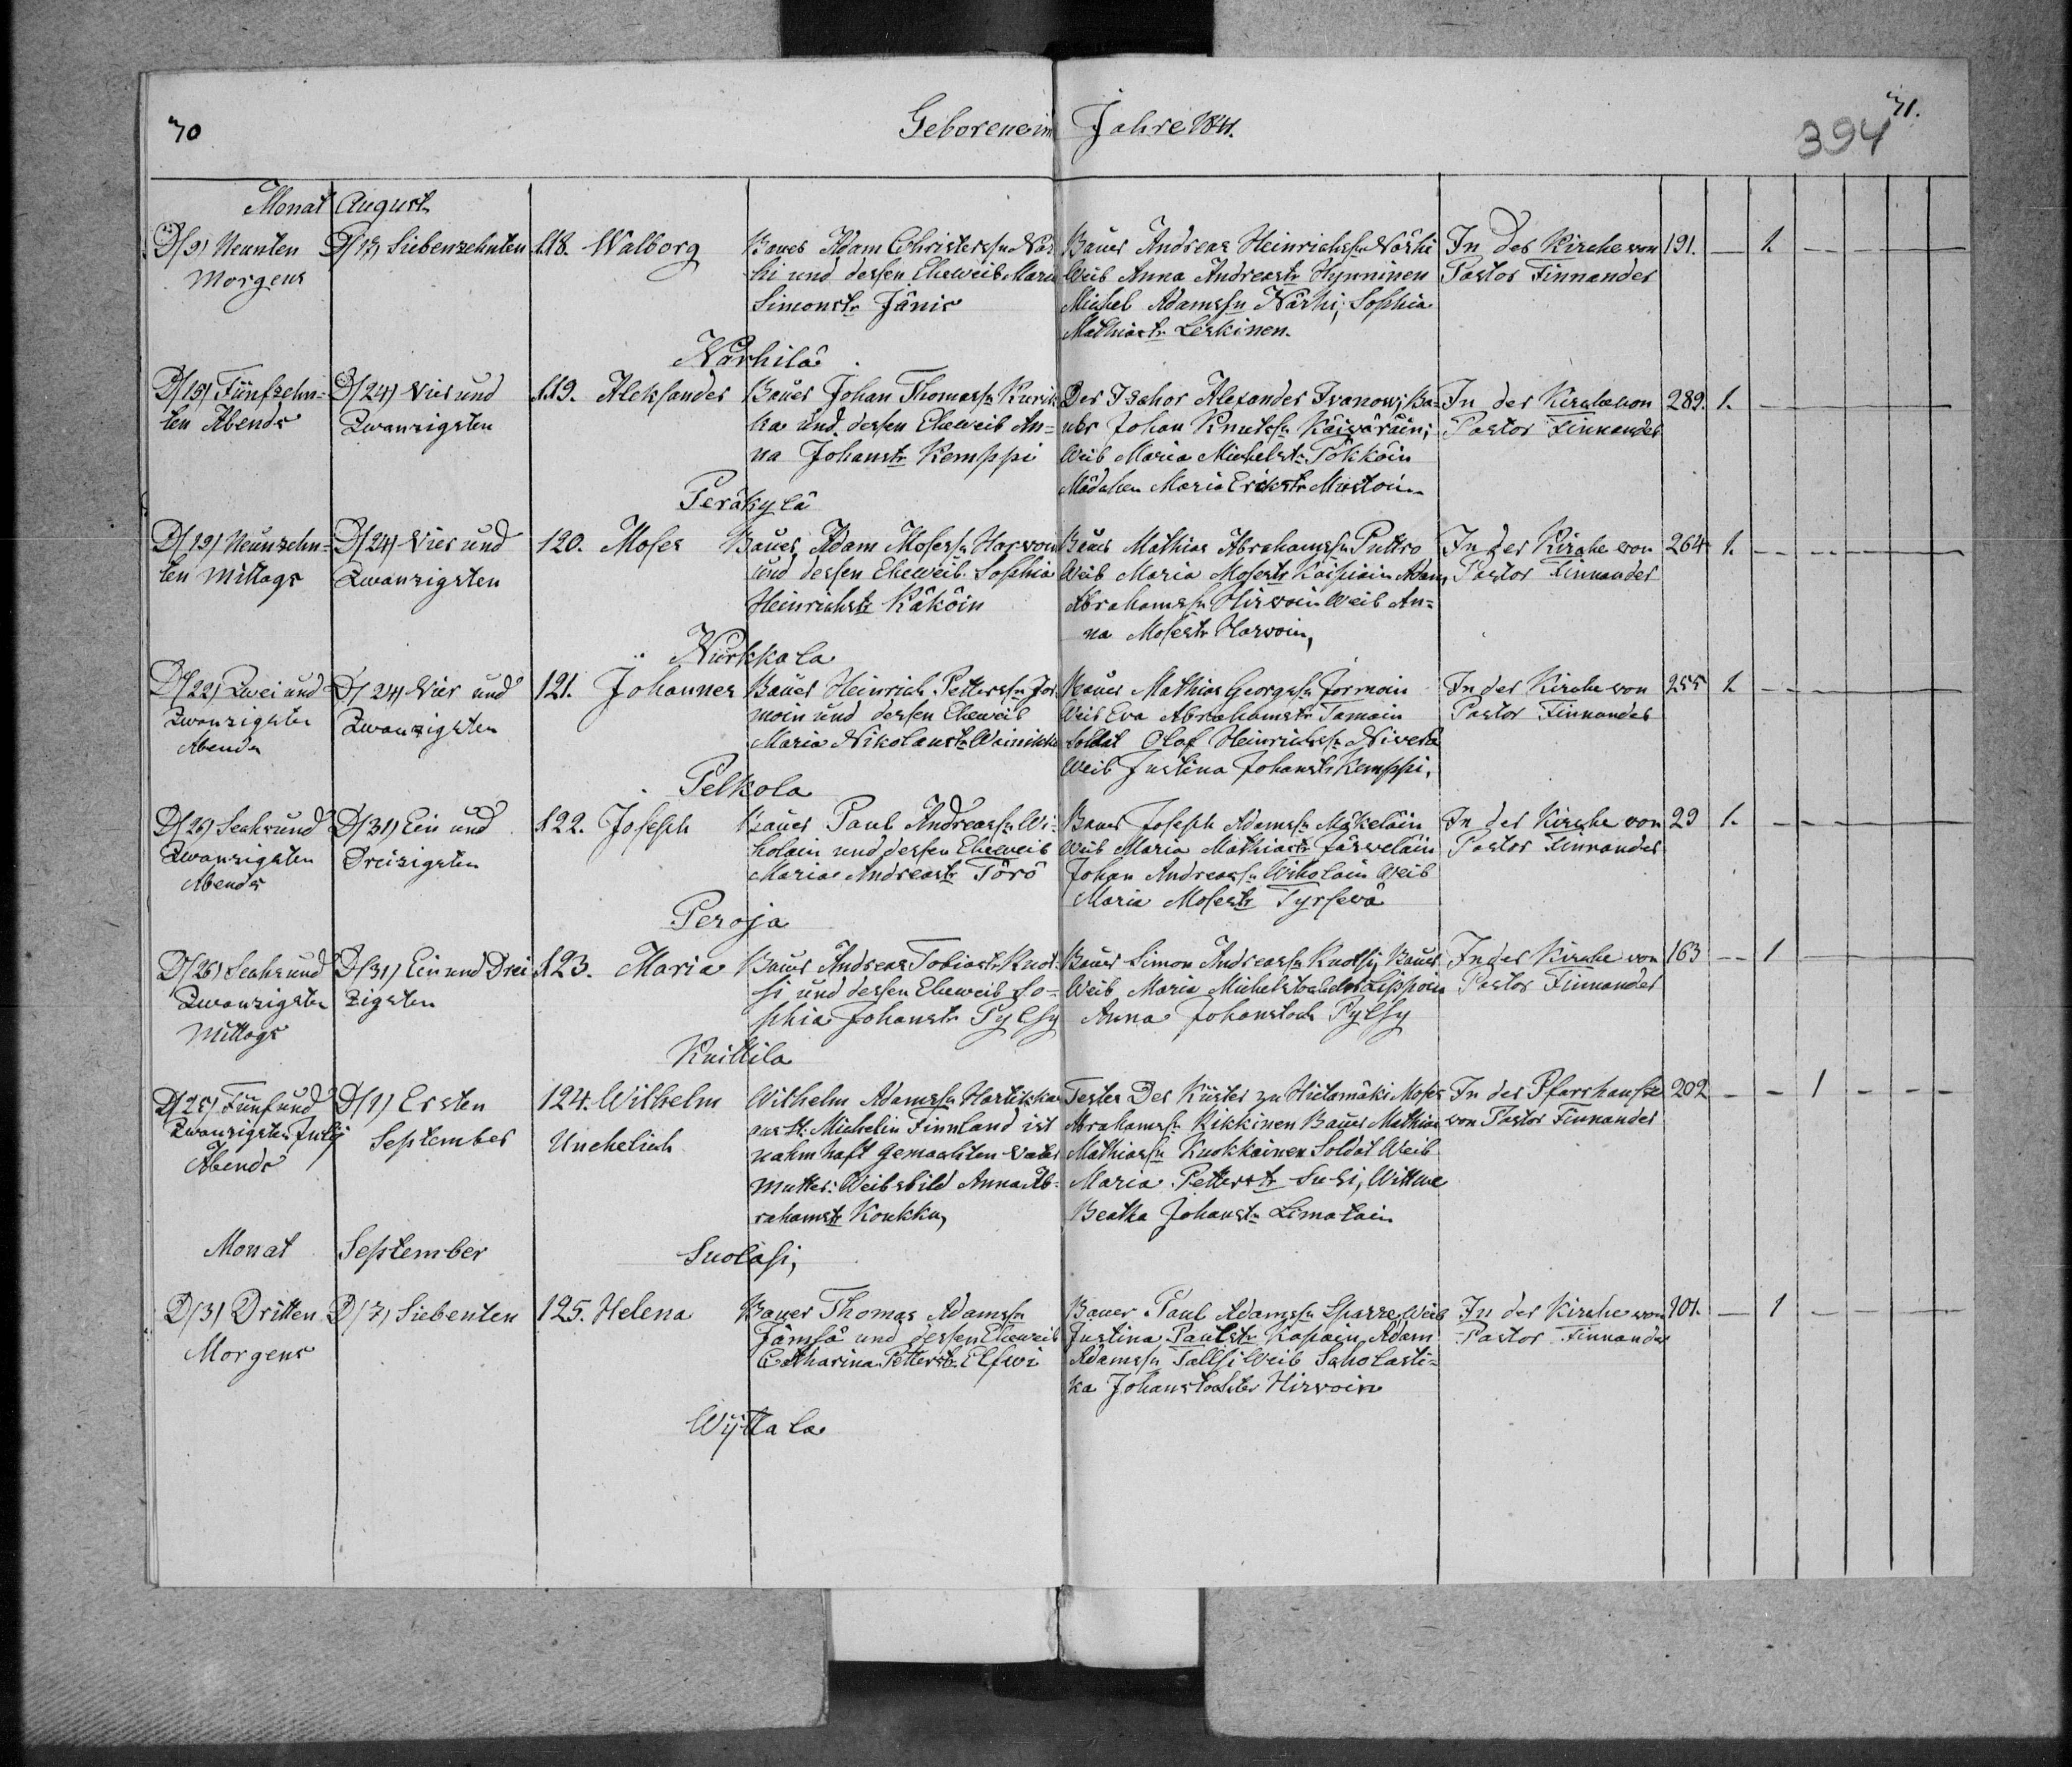 70
Geborene im Jahre 1841.
71.
394
Monat August
D/9) Neunten
Morgens
D/17) Siebenzehnten
118. Walborg
Bauer Adam Christerssn När-
hi und dessen Eheweib Maria
Simonstr Jänis
Bauer Andreas Heinrichssn Närhi
Weib Anna Andreastr Hynninen
Michel Adamssn Närhi, Sophia
Mathiastr Leskinen.
In der Kirche von
Pastor Finnander
191. — 1.
Närhilä
D/15) Fünfzehn-
ten Abends
D/24) Vier und
Zwanzigsten
119. Aleksander
Bauer Johan Thomassn Kurik
ka und dessen Eheweib An-
na Johanstr Kemppi
Der Isahor Alexander Ivanow; Ba-
uer Johan Knutssn Käiväräin;
Weib Maria Michelstr Tökköin
Mädchen Maria Erikstr Mustoin
In der Kirche von
Pastor Finnander
289. 1.
Peräkylä
D/19) Neunzehn-
ten Mittags
D/24) Vier und
Zwanzigsten
120. Moses
Bauer Adam Mosessn Harvoin
und dessen Eheweib Sophia
Heinrichstr Käköin
Bauer Mathias Abrahamssn Puttro
Weib Maria Mosestr Käipiäin Adam
Abrahamssn Hirvoin Weib An-
na Mosestr Harvoin,
In der Kirche von
Pastor Finnander
264 1.
Nurkkala
D/22) Zwei und
Zwanzigsten
Abends
D/24) Vier und
Zwanzigsten
121. Johannes
Bauer Heinrich Petterssn Jor
moin und dessen Eheweib
Maria Nikolaustr Wainikka
Bauer Mathias Georgssn Jormoin
Weib Eva Abrahamstr Tamoin
Soldat Olof Heinrichssn Nivera
Weib Justina Johanstr Kemppi,
In der Kirche von
Pastor Finnander
255 1.
Pelkola
D/26) Sechs und
Zwanzigsten
Abends
D/31) Ein und
Dreizigsten
122. Joseph
Bauer Paul Andreassn Wi-
kolain und dessen Eheweib
Maria Andreastr Törö
Bauer Joseph Adamssn Mäkeläin
Weib Maria Mathiastr Järveläin
Johan Andreassn Wikolain Weib
Maria Mosestr Tyrsevä
In der Kirche von
Pastor Finnander
29 1.
Peroja
D/26) Sechs und
Zwanzigsten
Mittags
D/31) Ein und Drei
zigsten
123. Maria
Bauer Andreas Tobiastr Knot-
si und dessen Eheweib So-
phia Johanstr Pylsy
Bauer Simon Andreassn Knotsi; Bauer
Weib Maria Michelstochter Lippoin
Anna Johanstoch Pylsy
In der Kirche von
Pastor Finnander
163 — 1
Knittila
D/25) Fünf und
Zwanzigsten July
Abends
D/1) Ersten
September
124. Wilhelm
Unehelich
Wilhelm Adamssn Hartikka
aus St: Michel in Finnland ist
nahmhaft gemachten Vater
Mutter: Weibsbild Anna Ab-
rahamstr Koukku,
Testes Der Küster zu Hietamäki Moses
Abrahamssn Kikkinen Bauer Mathias
Mathiassn Kuokkainen Soldat Weib
Maria Petterstr Susi, Wittwe
Beatha Johanstr Limatain
In der Pfarrhause
von Pastor Finnander
202 - - 1 - - -
Monat September
Suolasi,
D/3) Dritten
Morgens
D/7) Siebenten
125. Helena
Bauer Thomas Adamssn
Jämsä und dessen Eheweib
Catharina Petterstr Elfwi
Bauer Paul Adamssn Sparre, Weib
Justina Paulstr Kapain, Adam
Adamssn Tallsi Weib Scholasti-
ka Johanstochter Hirvoin
In der Kirche von
Pastor Finnander
101. — 1
Wyttala